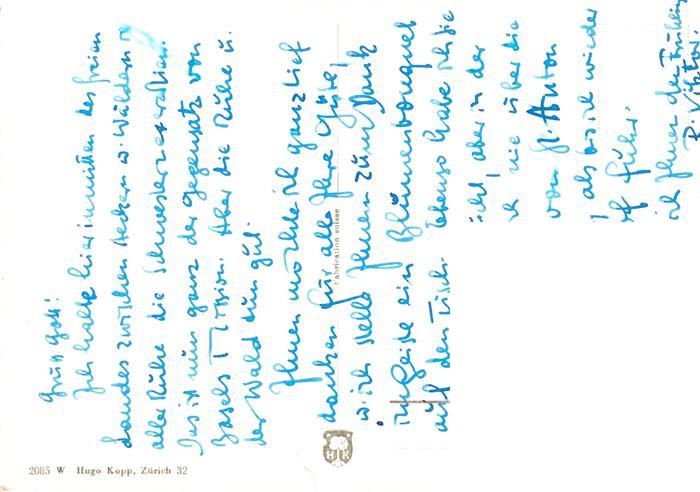 Grüss Gott!
Ich halte hier inmitten des freien
Landes zwischen Aeckern u. Wäldern in
aller Ruhe die Schwesternexerzitien.
Das ist nun ganz der Gegensatz von
Basels Mission. Aber die Ruhe u.
der Wald tun gut.
Ihnen möchte ich ganz tief
danken für alle Ihre Güte,
u. ich stelle Ihnen zum Dank
im Geiste ein Blumenbouquet
auf den Tisch. Ebenso habe ich die
aber in der
ich nie über die
von St. Anton
als wo ich wieder
führ.
ich Ihnen
P. Viktor.
Fabrication suisse
HK
2085 W Hugo Kopp, Zürich 32